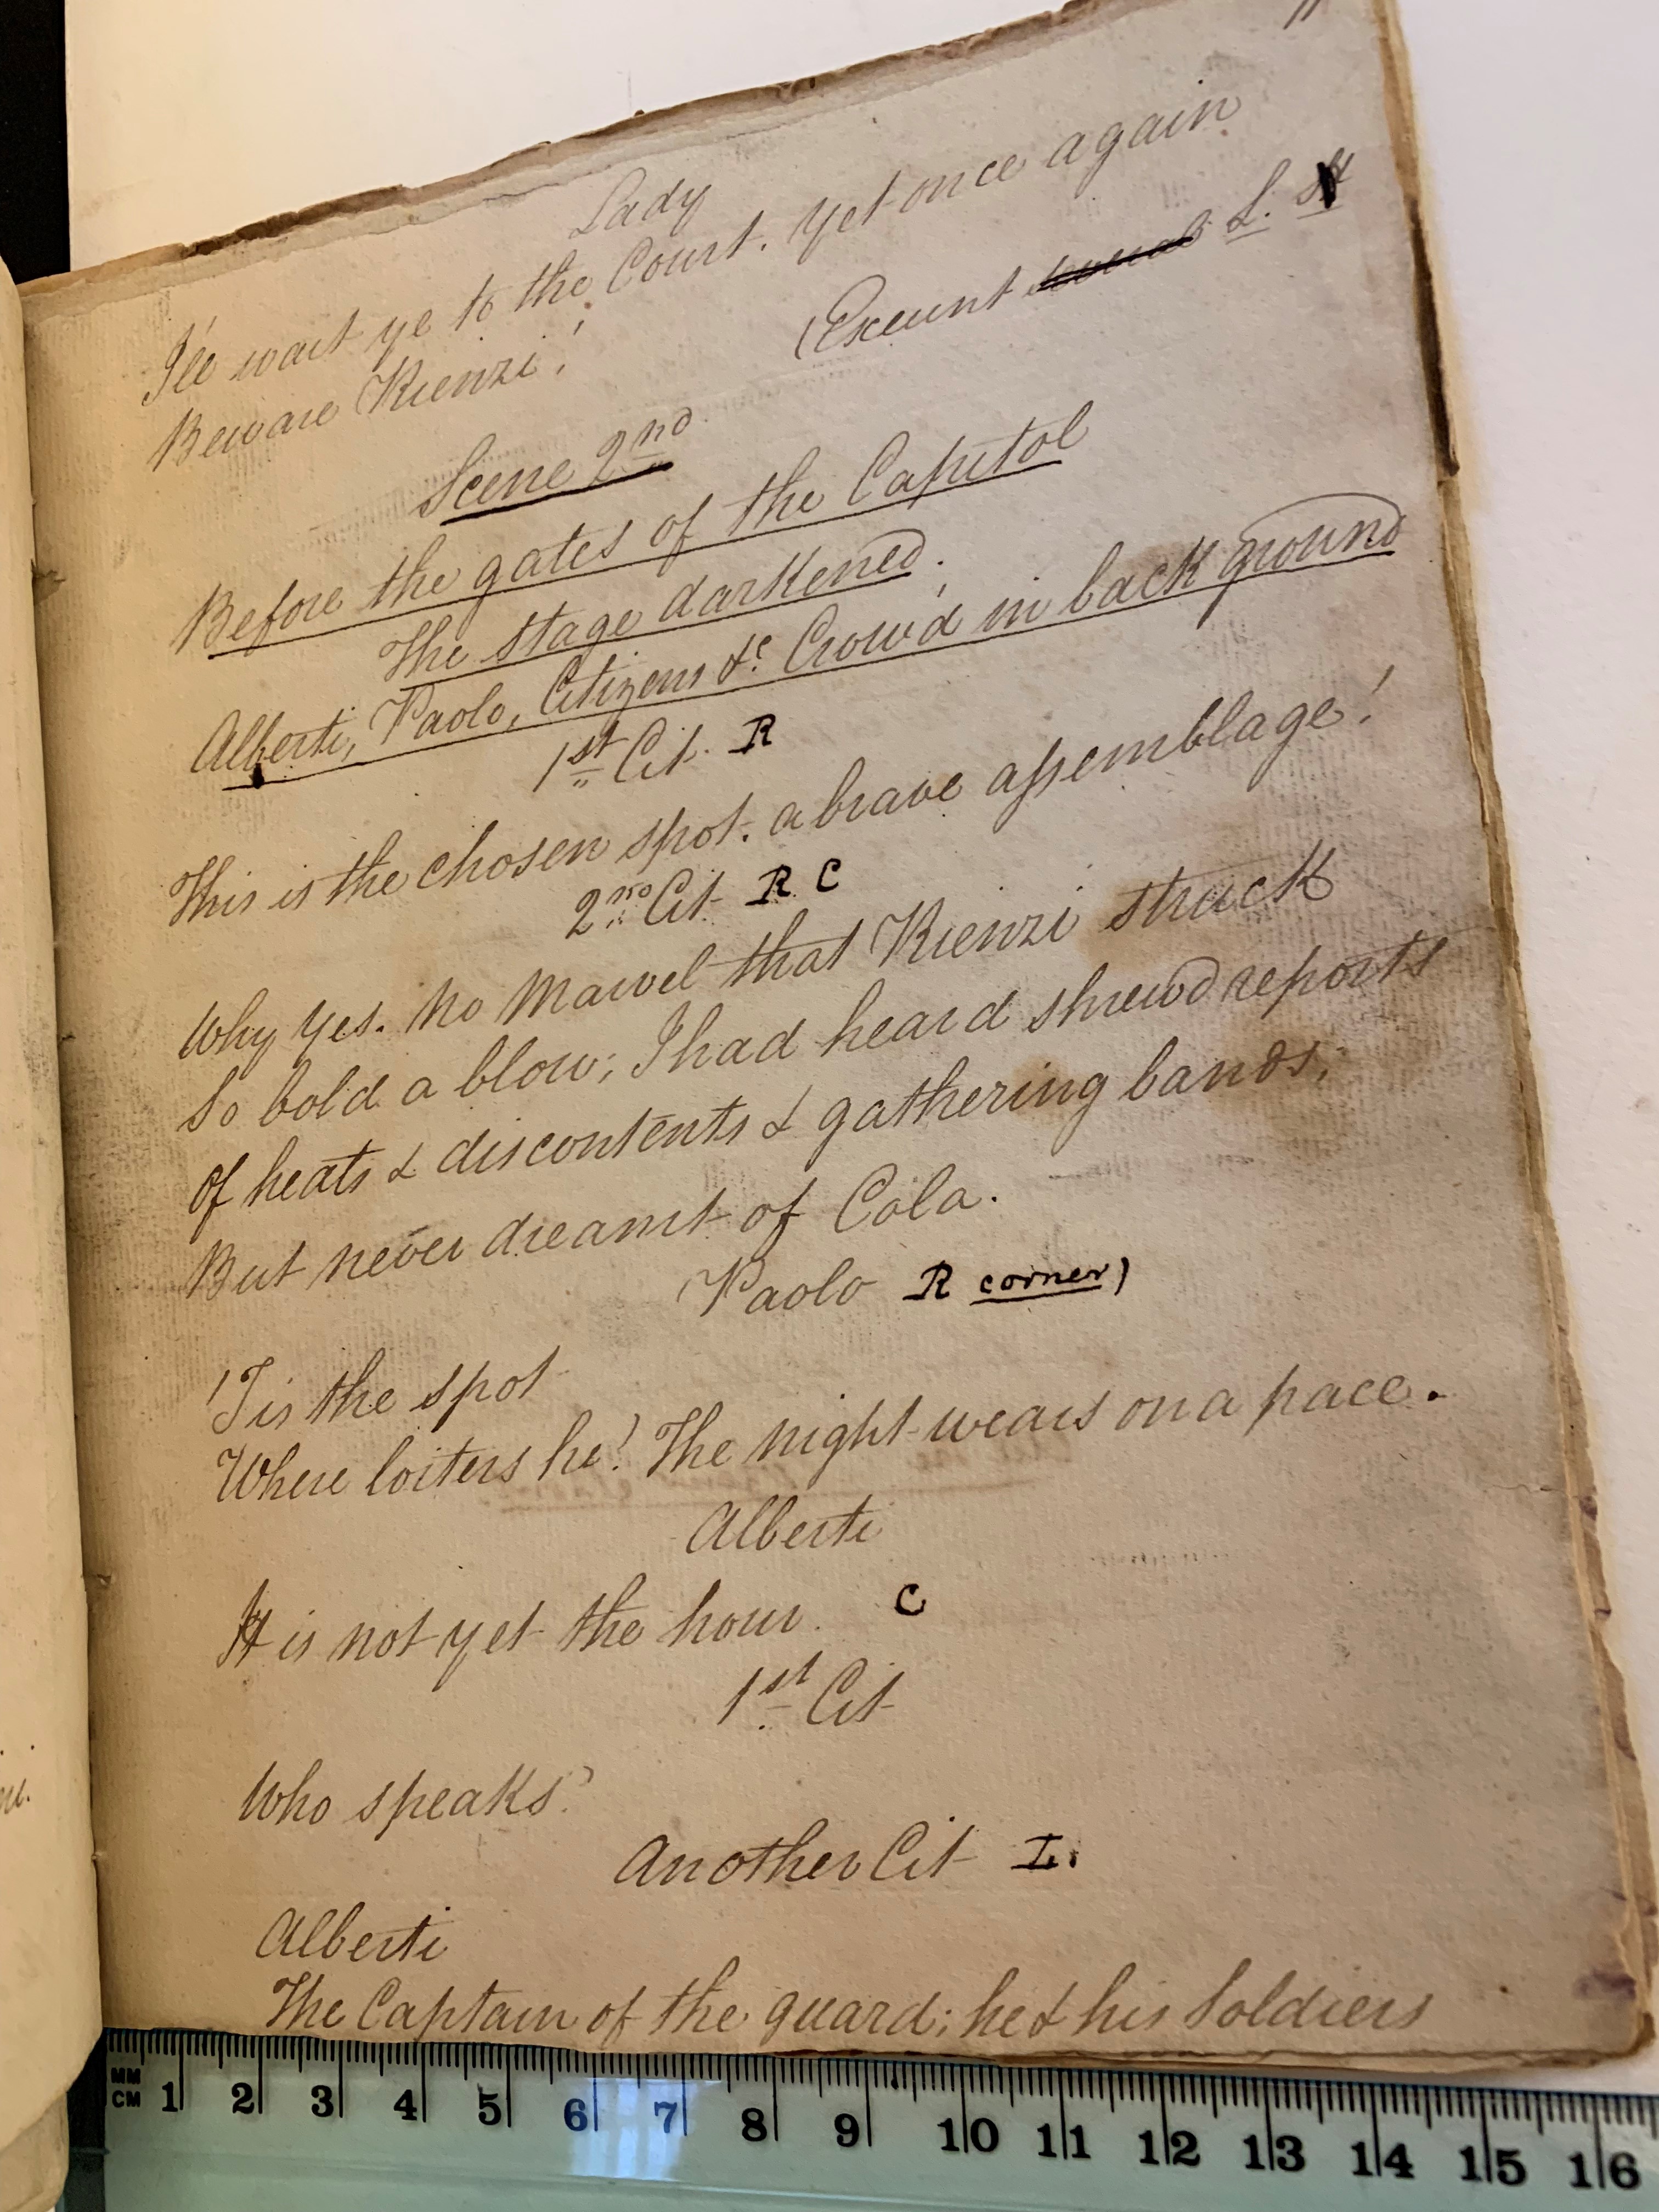 11
Lady
I'le wait ye to the Court. yet once again
Beware Rienzi!
(Exeunt L.
Scene 2nd
Before the gates of the Capitol
The stage darkened.
Alberti, Paolo, Citizens &c. Crowd in back ground
1st Cit. R
This is the chosen spot. a brave assemblage!
2nd Cit R C
Why yes. No Marvel that Rienzi struck
So bold a blow; I had heard shrewd reports
Of heats & discontents & gathering bands;
But never dreamt of Cola.
(Paolo R corner)
'Tis the spot
Where loiters he! The night wears on a pace.
Alberti
It is not yet the hour. C
1st Cit
Who speaks?
Another Cit L.
Alberti
The Captain of the guard; he & his Soldiers
MM
CM 1 2 3 4 5 6 7 8 9 10 11 12 13 14 15 16